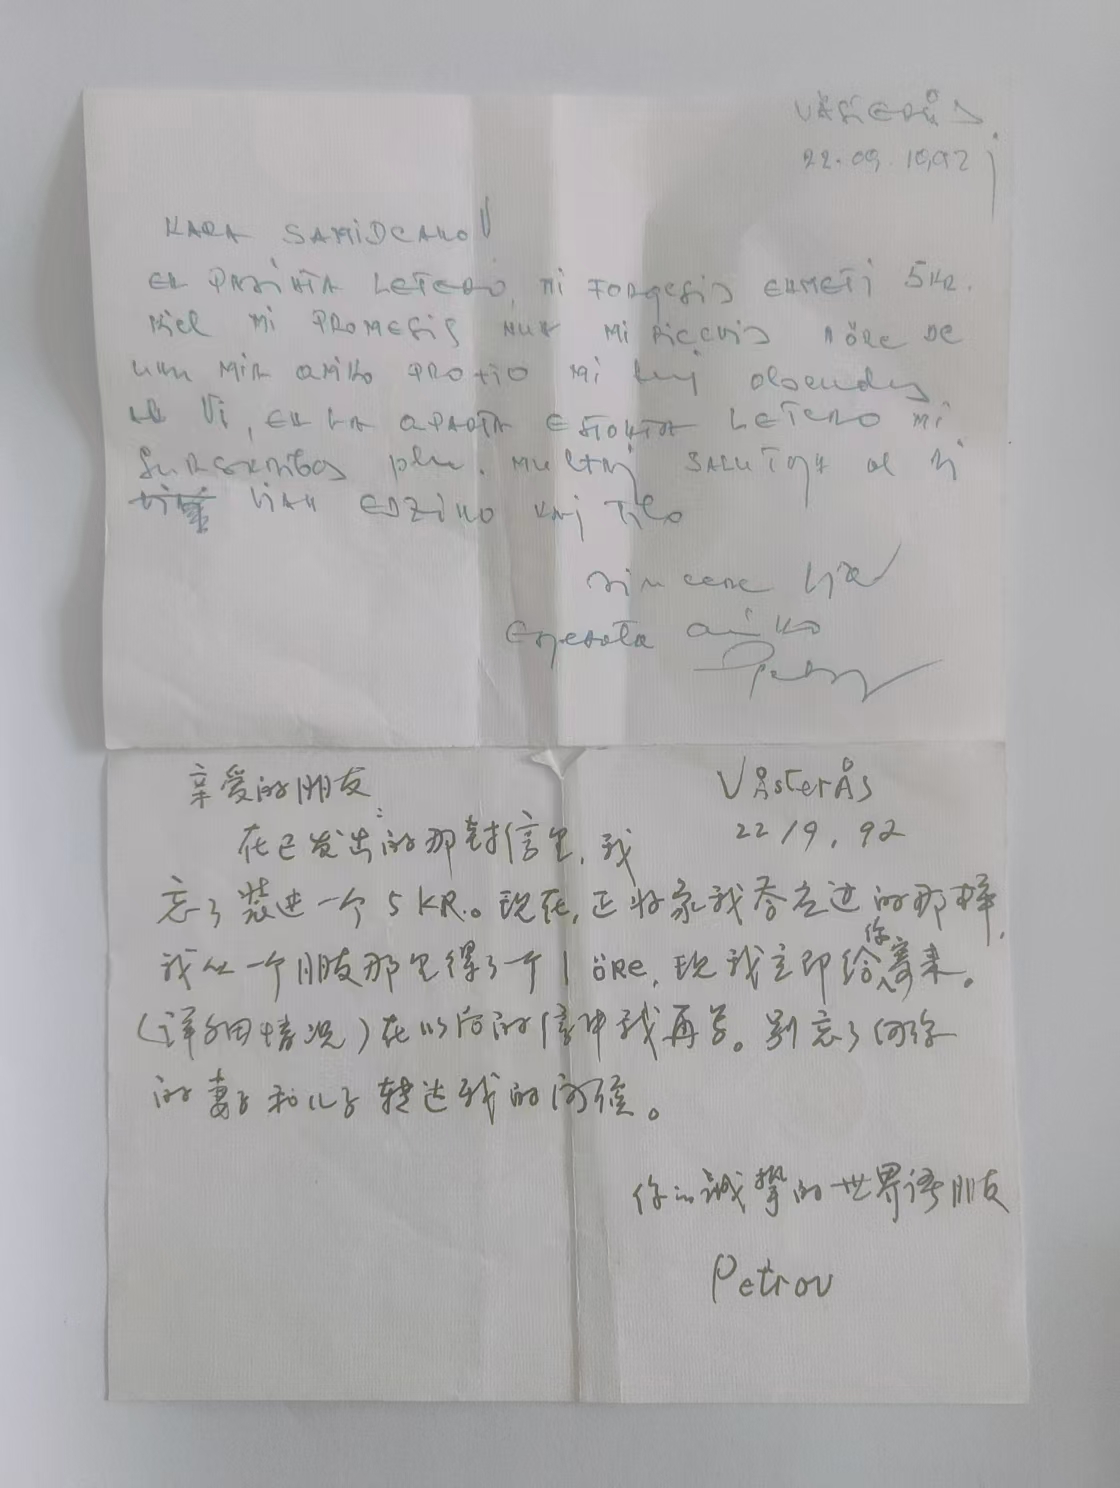 VÄSTERÅS
22.09.1992
KARA SAMIDEANO!
EN PASINTA LETERO, MI FORGESIS ENMETI 5 KR.
KIEL MI PROMESIS NUN MI RICEVIS 1 ÖRE DE
UNU MIA AMIKO PRO TIO MI tuj alsendas
al Vi, EN LA APARTA LETERO MI
plu. MULTAJ SALUTOJN al Vi
VIAN EDZINO KAJ FILO
Sincere Via
Esperanta amiko
Petrov
亲爱的朋友
VÅsterÅs
22/9, 92
在已发出的那封信里,我
忘了装进一个5 KR.。现在,正如象我答应过的那样,
我从一个朋友那里得了一个1 öre,现我立即给你寄来。
(详细情况)在以后的信中我再写。别忘了向你
的妻子和儿子转达我的问候。
你的诚挚的世界语朋友
Petrov